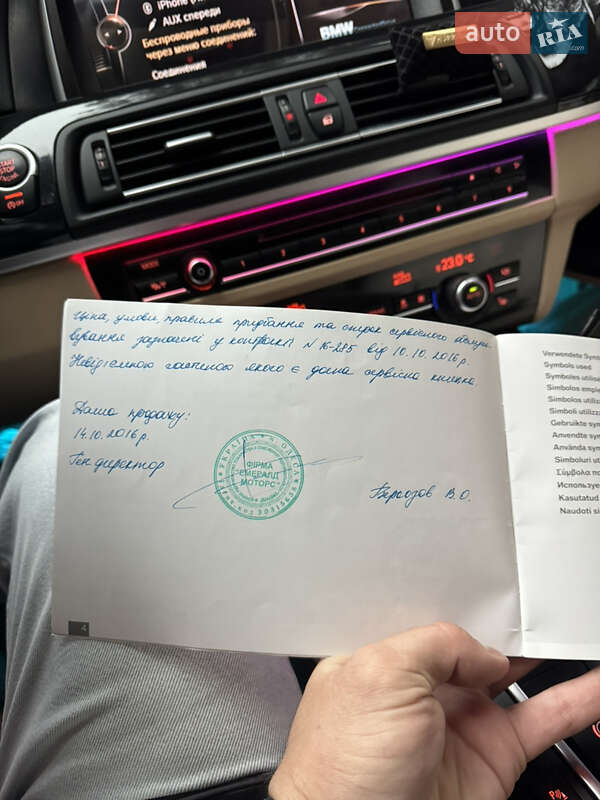 iPhone
AUX спереди
Беспроводные приборы
через меню соединений:
Соединения
BMW
auto RIA.com
START
STOP
MODE
1 2 3 4 5 6 7 8
23.0°C
Ціна, умови, правила придбання та строк сервісного обслуго-
вування зазначені у контракті N 16-285 від 10.10.2016р.
Невід'ємною частиною якого є дана сервісна книжка.
Дата продажу:
14.10.2016р.
Ген директор
УКРАЇНА * м. ОДЕСА
ФІРМА
"ЕМЕРАЛД
МОТОРС"
В.О.
4
Verwendete Sym
Symbols used
Symboles utilisé
Símbolos emple
Símbolos utiliza
Simboli utilizza
Gebruikte sym
Anvendte sym
Använda sym
Símboluri ut
Σύμβολα πο
Используе
Kasutatud
Naudoti si